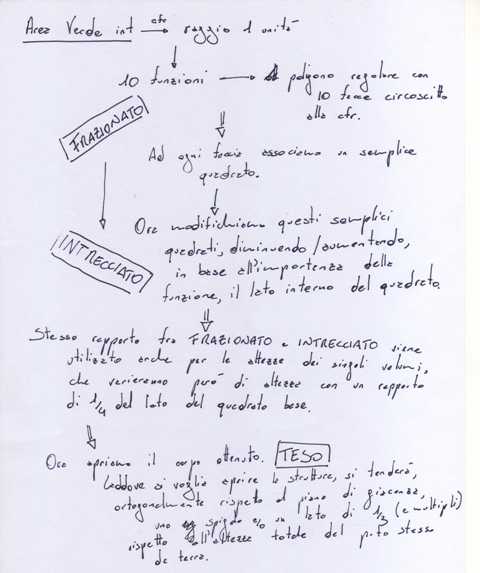 Area Verde int → cfr raggio 1 unità
10 funzioni → polígono regolare con
10 facce circoscritto
alla cfr.
FRAZIONATO
Ad ogni faccia associamo un semplice
quadrato.
INTRECCIATO
Ora modifichiamo questi semplici
quadrati, diminuendo/aumentando,
in base all'importanza della
funzione, il lato interno del quadrato.
Stesso rapporto fra FRAZIONATO e INTRECCIATO viene
utilizzato anche per le altezze dei singoli volumi,
che varieranno però di altezza con un rapporto
di 1/4 del lato del quadrato base.
Ora apriamo il corpo ottenuto. TESO
Laddove si voglia aprire la struttura, si tenderà,
ortogonalmente rispetto al piano di giacenza,
uno spigolo e/o un lato di 1/3 (e multipli)
rispetto all'altezza totale del p.to stesso
da terra.